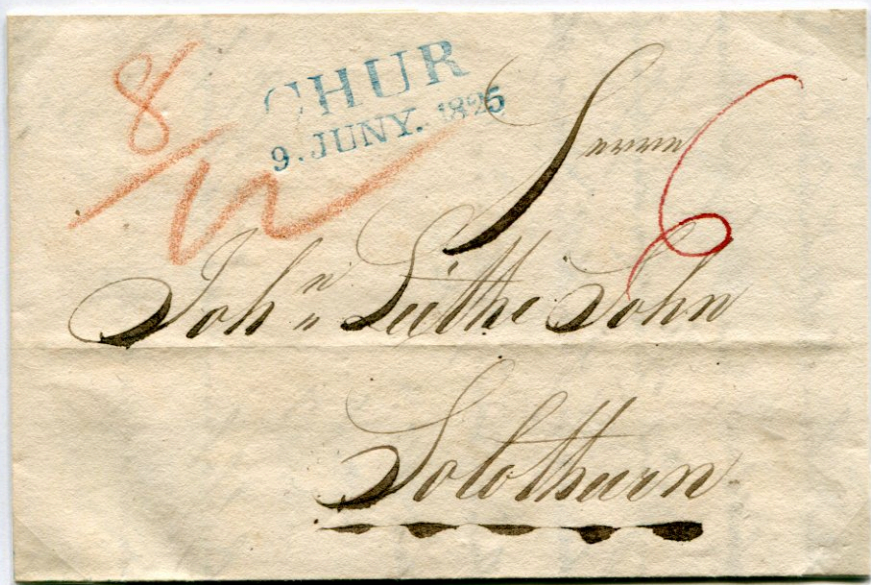 8/12
CHUR
9. JUNY. 1825
6
Herren
Joh.n Lüthi Sohn
Solothurn